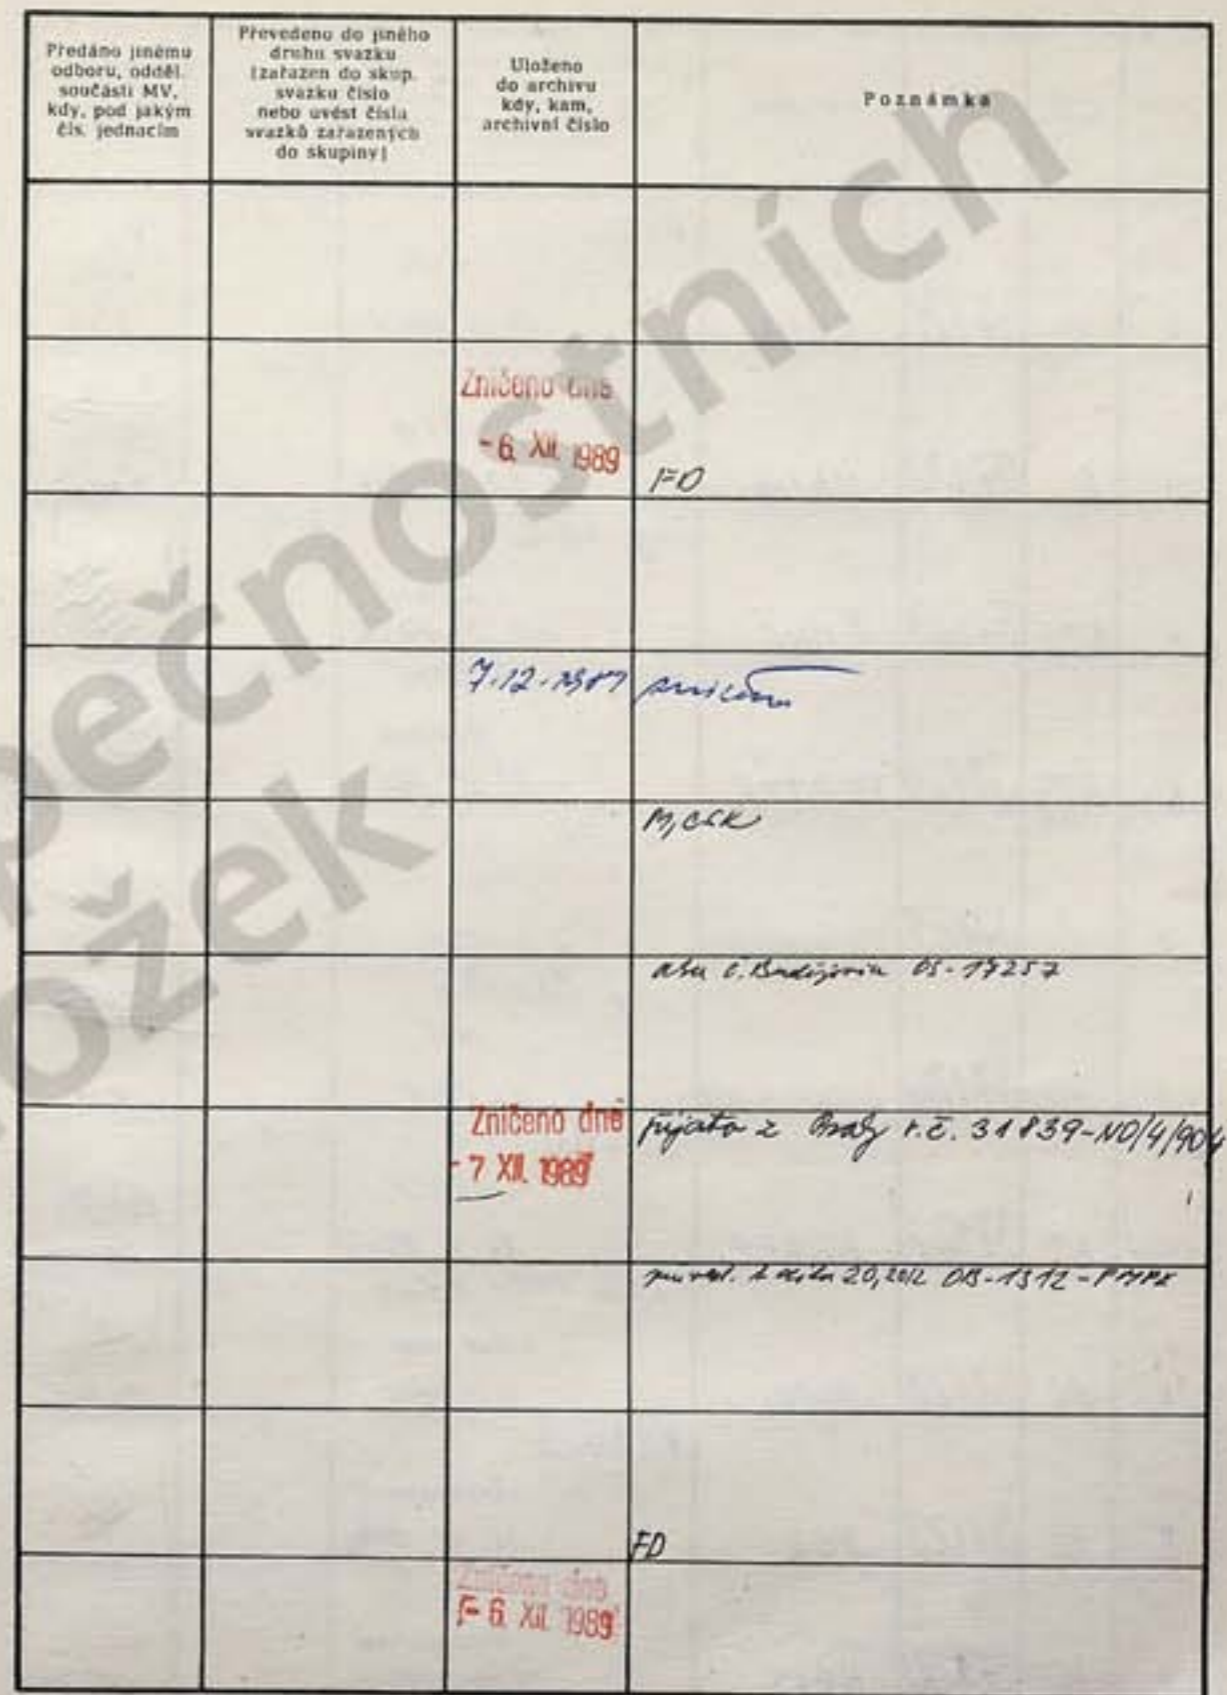 Předáno jinému
odboru, odděl.
součásti MV,
kdy, pod jakým
čís. jednacím
Převedeno do jiného
druhu svazku
(zařazen do skup.
svazku číslo
nebo uvést čísla
svazků zařazených
do skupiny)
Uloženo
do archivu
kdy, kam,
archivní číslo
Poznámka
Zničeno dne
- 6. XII. 1989
FD
7.12.1989
M, CSK
OS-17257
Zničeno dne
- 7 XII. 1989
r.č. 31839-NO/4/904
OB-1312-
FD
Zničeno dne
- 6. XII. 1989
pečnostních
ožek